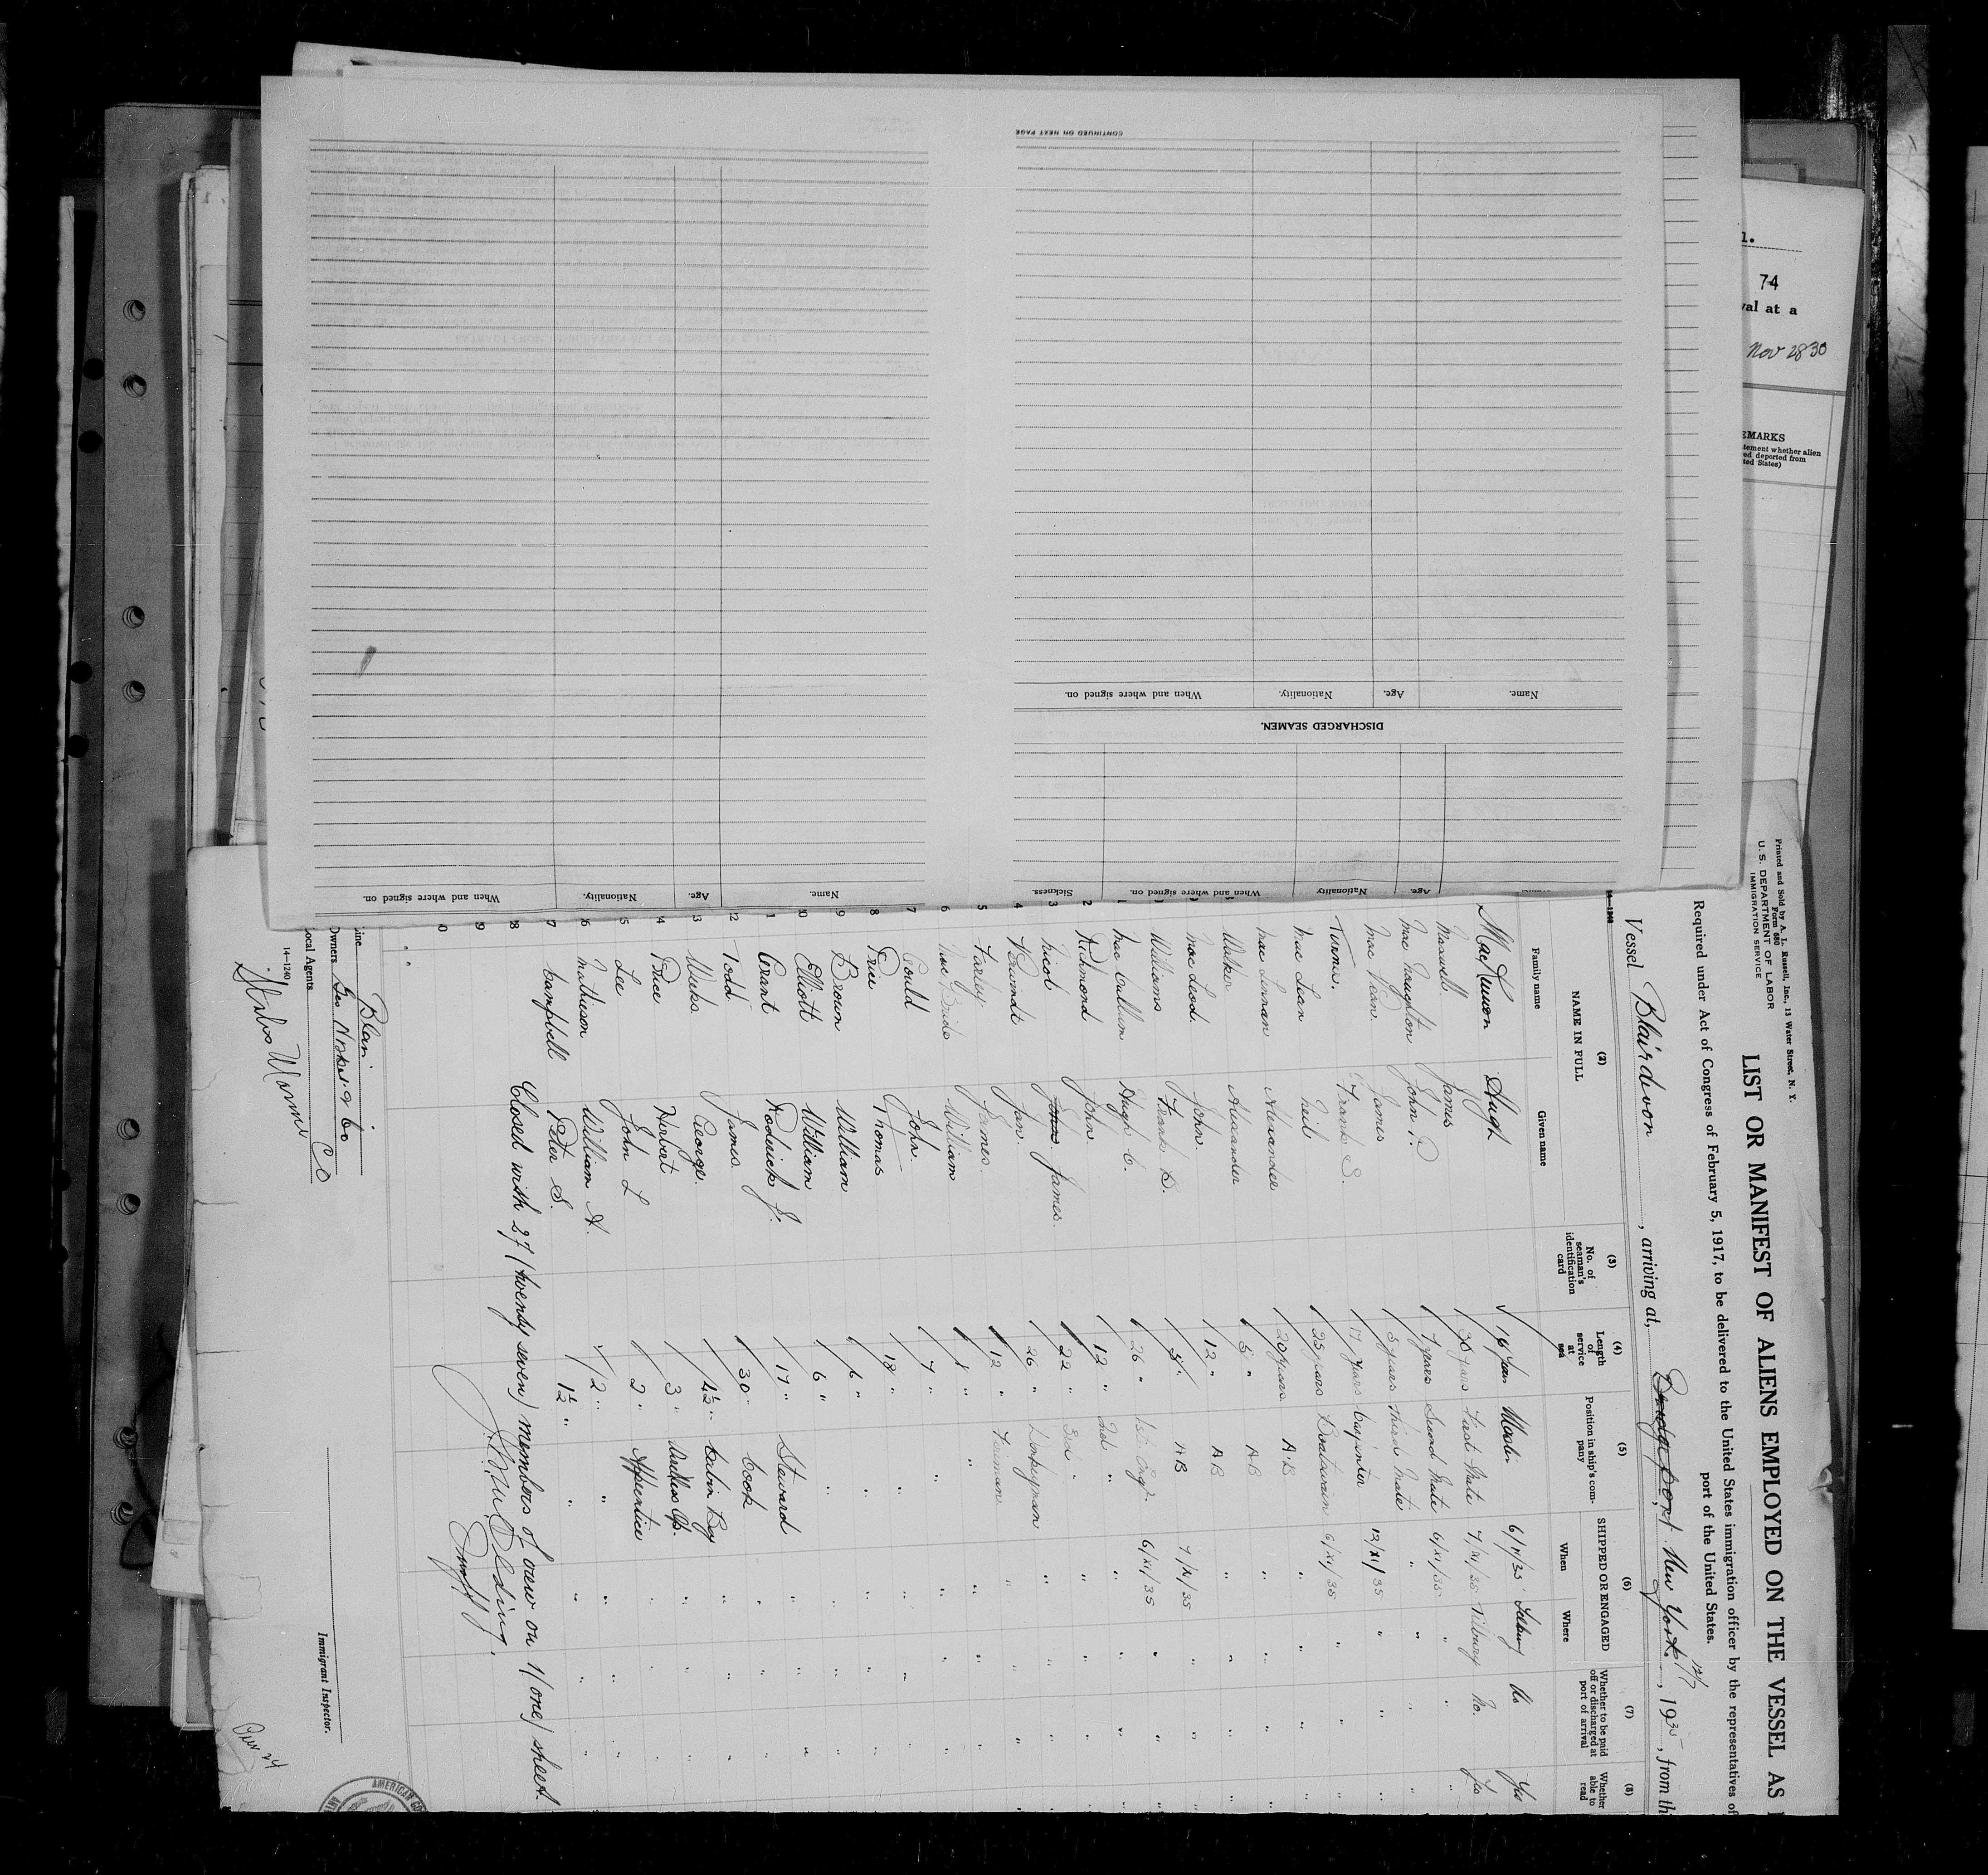 CONTINUED ON NEXT PAGE
Name.
Age.
Nationality.
When and where signed on.
DISCHARGED SEAMEN.
Name.
Age.
Nationality.
When and where signed on.
Sickness.
Name.
Age.
Nationality.
When and where signed on.
1.
74
val at a
Nov 28 30
EMARKS
tement whether alien
ed deported from
ted States)
Printed and Sold by A. L. Russell, Inc., 13 Water Street, N. Y.
Form 680
U. S. DEPARTMENT OF LABOR
IMMIGRATION SERVICE
LIST OR MANIFEST OF ALIENS EMPLOYED ON THE VESSEL AS
Required under Act of Congress of February 5, 1917, to be delivered to the United States immigration officer by the representatives of
port of the United States.
Vessel Blairdevon, arriving at, Bridgeport New York 12/7, 1935, from th
(2) (3) (4) (5) (6) (7) (8)
NAME IN FULL
Family name Given name
No. of seaman's identification card
Length of service at sea
Position in ship's company
SHIPPED OR ENGAGED
When Where
Whether to be paid off or discharged at port of arrival
Whether able to read
MacKinnon Hugh 16 years Master 6/11/35 Tilbury No Yes
Maxwell James 30 years First Mate 7/XI/35 Tilbury No. Yes
Mac Naughton John P. 7 years Second Mate 6/XI/35 " " "
Mac Vean. James 5 years Third Mate " " " "
Turns. Frank S. 17 years Carpinter 12/XI/35 " " "
Mac Lean Neil 25 years Boatswain 6/XI/35 " " "
Mac Lennan Alexander 20 years A.B " " " "
Walker Alexander 5 " A.B " " " "
Mac Leod. John. 12 " A.B " " " "
Williams Frank D. 5 " A.B 7/XI/35 " " "
Mac Callum Hugh C. 26 " 1st Engr. 6/XI/35 " " "
2 Richmond John. 12 " 2nd " " " " "
3 Nicol James. 22 " 3rd " " " " "
4 Jan. 26 " Donkeyman " " " "
5 Farley James. 12 " Fireman " " " "
6 Mac Bride William " " " " " "
7 Gould John. 7 " " " " " "
8 Price Thomas 18 " " " " " "
9 Brown William 6 " " " " " "
10 Elliott William 6 " " " " " "
11 Grant Roderick J. 17 " Steward " " " "
12 Todd James 30 " Cook " " " "
13 Weeks. George. 4½ " Cabin Boy " " " "
14 Price Herbert 3 " Wireless Op. " " " "
15 Lee John L 2 " Apprentice " " " "
16 Mathieson William A. 2 " " " " " "
17 Campbell Peter S. 1½ " " " " " "
18 Closed with 27 (twenty seven) members of crew on 1 (one) sheet.
19
Line Blair
Owners Geo Nisbet & Co
Local Agents
14—1240
Immigrant Inspector.
AMERICAN CO